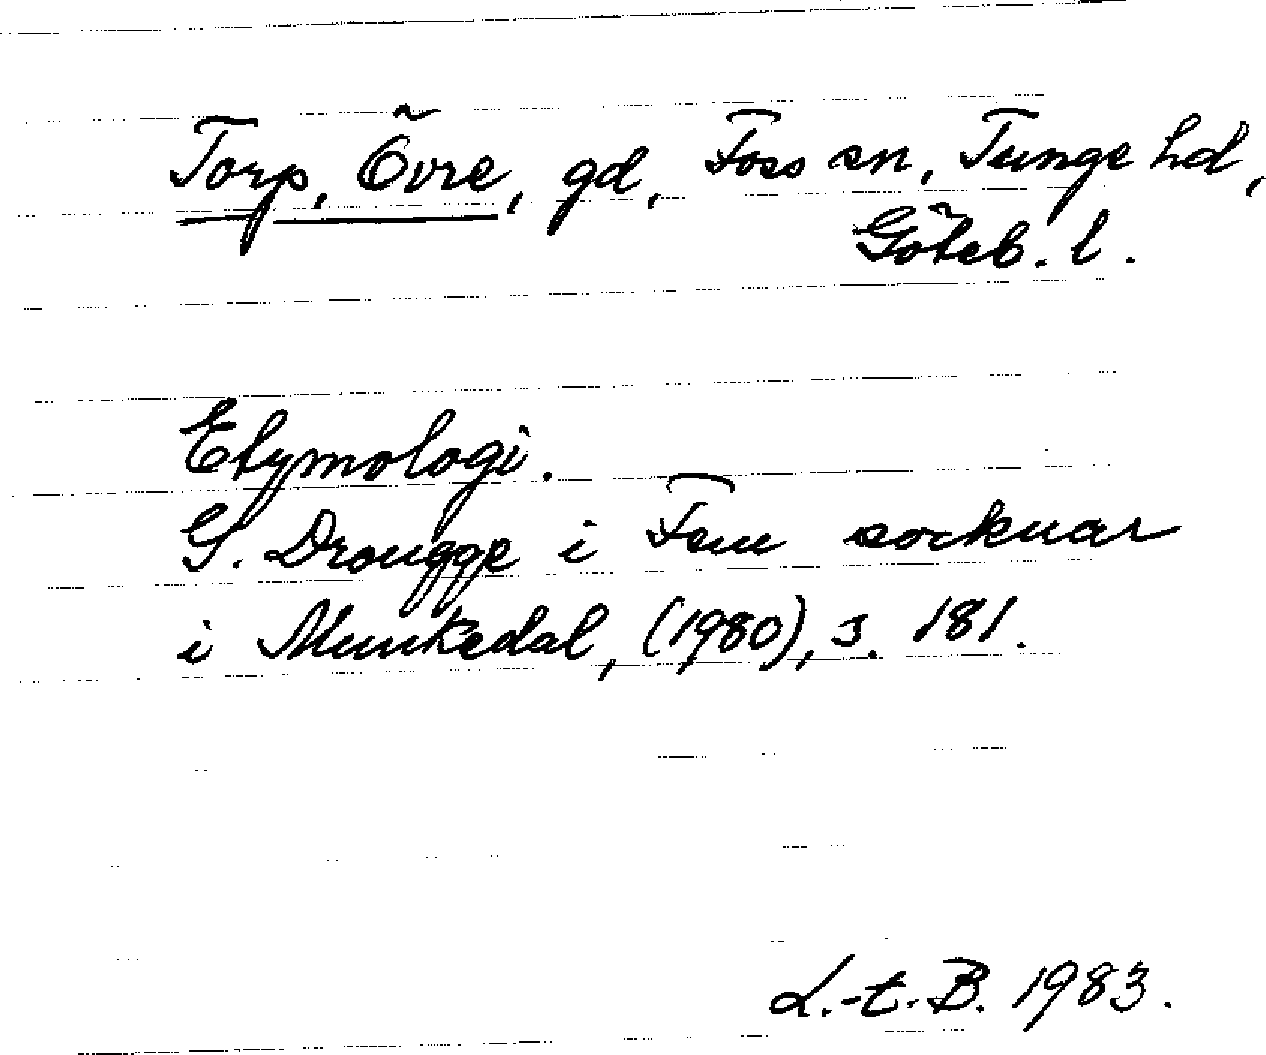 Torp, Övre, gd, Foss sn, Tunge hd,
Göteb. l.
Etymologi.
G. Drougge i Fem socknar
i Munkedal, (1980), s. 181.
L.-t. B. 1983.